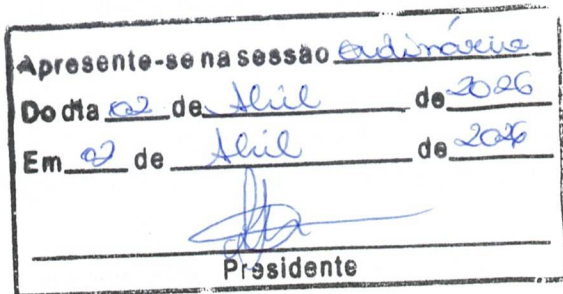 Apresente-se na sessão ordinária
Do dia 02 de Abril de 2026
Em 02 de Abril de 2026
Presidente